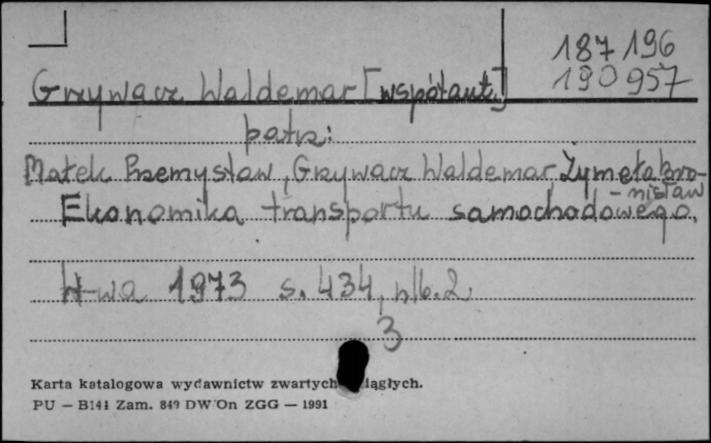 187 196
190 957
Grzywacz Waldemar [współaut.]
patrz:
Małek Przemysław, Grzywacz Waldemar Żymeła Bro-
nisław
Ekonomika transportu samochodowego.
W-wa 1973 s. 434, nlb. 2.
3
Karta katalogowa wydawnictw zwartych iągłych.
PU — B141 Zam. 849 DW/On ZGG — 1991